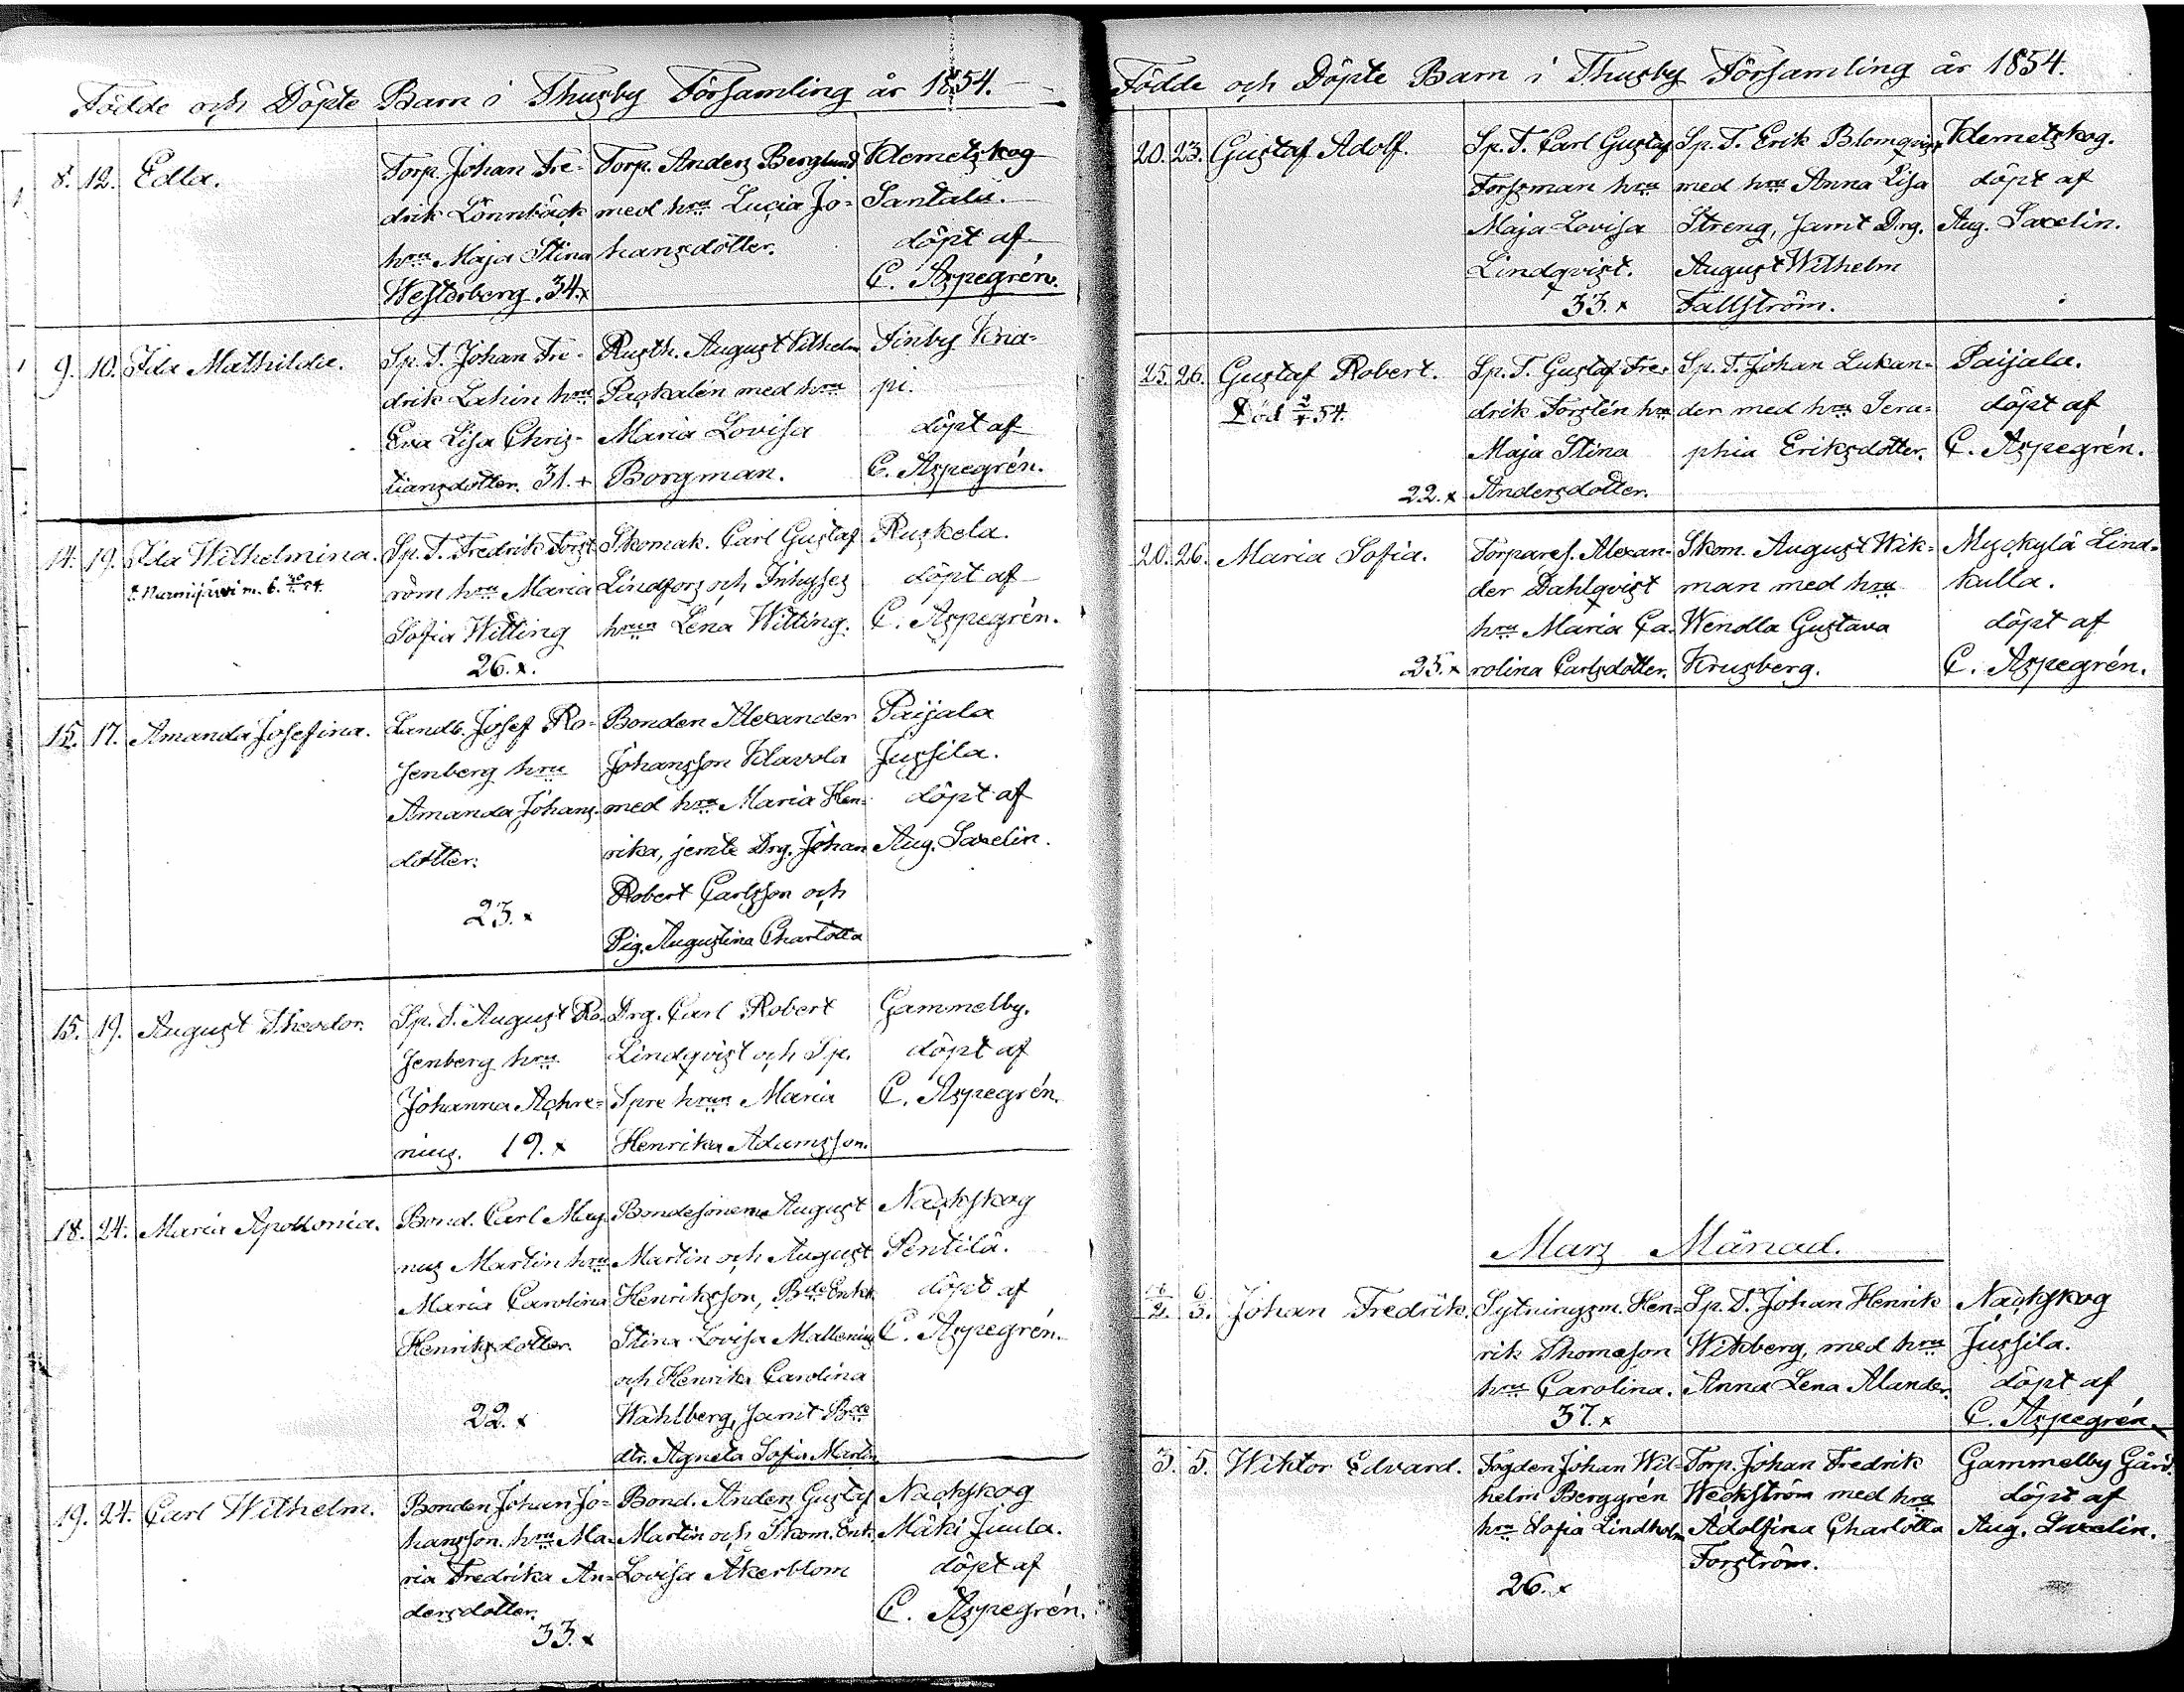 Födde och Döpte Barn i Thusby Församling år 1854.
8. 12. Edla.
Torp. Johan Fre-
drik Lönnbäck
hru Maja Stina
Westerberg. 34.x
Torp. Anders Berglund
med hru Lucia Jo-
hansdotter.
Klemetskog
Santala.
döpt af
C. Aspegrén.
9. 10. Ida Mathilda.
Sp. T. Johan Fre-
drik Lahin hru
Eva Lisa Chris-
tiansdotter. 31.+
Rusth. August Vilhelm
Paskalén med hru
Maria Lovisa
Borgman.
Finby Kna-
pi.
döpt af
C. Aspegrén.
14. 19. Ida Wilhelmina.
t. Nurmijärvi m. b.
Sp. T. Fredrik Forst
röm hru Maria
Sofia Witting
26.x.
Skomak. Carl Gustaf
Lindfors och Inhyses
hrun Lena Witting.
Ruskela.
döpt af
C. Aspegrén.
15. 17. Amanda Josefina.
Landb. Josef Ro-
senberg hru
Amanda Johans-
dotter.
23.x
Bonden Alexander
Johansson Klavola
med hru Maria Hen-
rika, jemte Drg. Johan
Robert Carlsson och
Pig. Augustina Charlotta
Paijala
Jussila.
döpt af
Aug. Saxelin.
15. 19. August Theodor.
Sp. T. August Ro-
senberg hru
Johanna Achre-
nius. 19.x
Drg. Carl Robert
Lindqvist och Sp.
Spre hrun Maria
Henrika Adamsson.
Gammelby.
döpt af
C. Aspegrén.
18. 24. Maria Apollonia.
Bond. Carl Mag-
nus Martin hru
Maria Carolina
Henriksdotter.
22.x
Bondesönerne August
Martin och August
Henriksson, Bde Enkk.
Stina Lovisa Mallenius
och Henrika Carolina
Wahlberg, samt Bde
dtr. Agneta Sofia Martin
Nackskog
Pentilä.
döpt af
C. Aspegrén.
19. 24. Carl Wilhelm.
Bonden Johan Jo-
hansson. hru Ma-
ria Fredrika An-
dersdotter.
33.x
Bond. Anders Gustaf
Martin och Skom. Enk.
Lovisa Åkerblom
Nackskog
Mäki Juula.
döpt af
C. Aspegrén.
Födde och Döpte Barn i Thusby Församling år 1854.
20. 23. Gustaf Adolf.
Sp. T. Carl Gustaf
Forssman hru
Maja Lovisa
Lindqvist.
33.x
Sp. T. Erik Blomqvist
med hru Anna Lisa
Streng, samt Drg.
August Wilhelm
Fallström.
Klemetskog.
döpt af
Aug. Saxelin.
25. 26. Gustaf Robert.
Död 54.
Sp. T. Gustaf Fre-
drik Forstén hru
Maja Stina
22.x Andersdotter.
Sp. T. Johan Lukan-
der med hru Sera-
phia Eriksdotter.
Paijala.
döpt af
C. Aspegrén.
20. 26. Maria Sofia.
Torpares. Alexan-
der Dahlqvist
hru Maria Ca-
25.x rolina Carlsdotter.
Skom. August Wik-
man med hru
Wendla Gustava
Krusberg.
Myckylä Lind-
kulla.
döpt af
C. Aspegrén.
Mars Månad.
Johan Fredrik.
Sytningsm. Hen-
rik Thomasson
hru Carolina.
37.x
Sp. T. Johan Henrik
Wikberg, med hru
Anna Lena Alander.
Nackskog
Jussila.
döpt af
C. Aspegrén.
3. 5. Wiktor Edvard.
Fogden Johan Wil-
helm Berggrén
hru Sofia Lindholm
26.x
Torp. Johan Fredrik
Weckström med hru
Adolfina Charlotta
Forström.
Gammelby Gård.
döpt af
Aug. Saxelin.